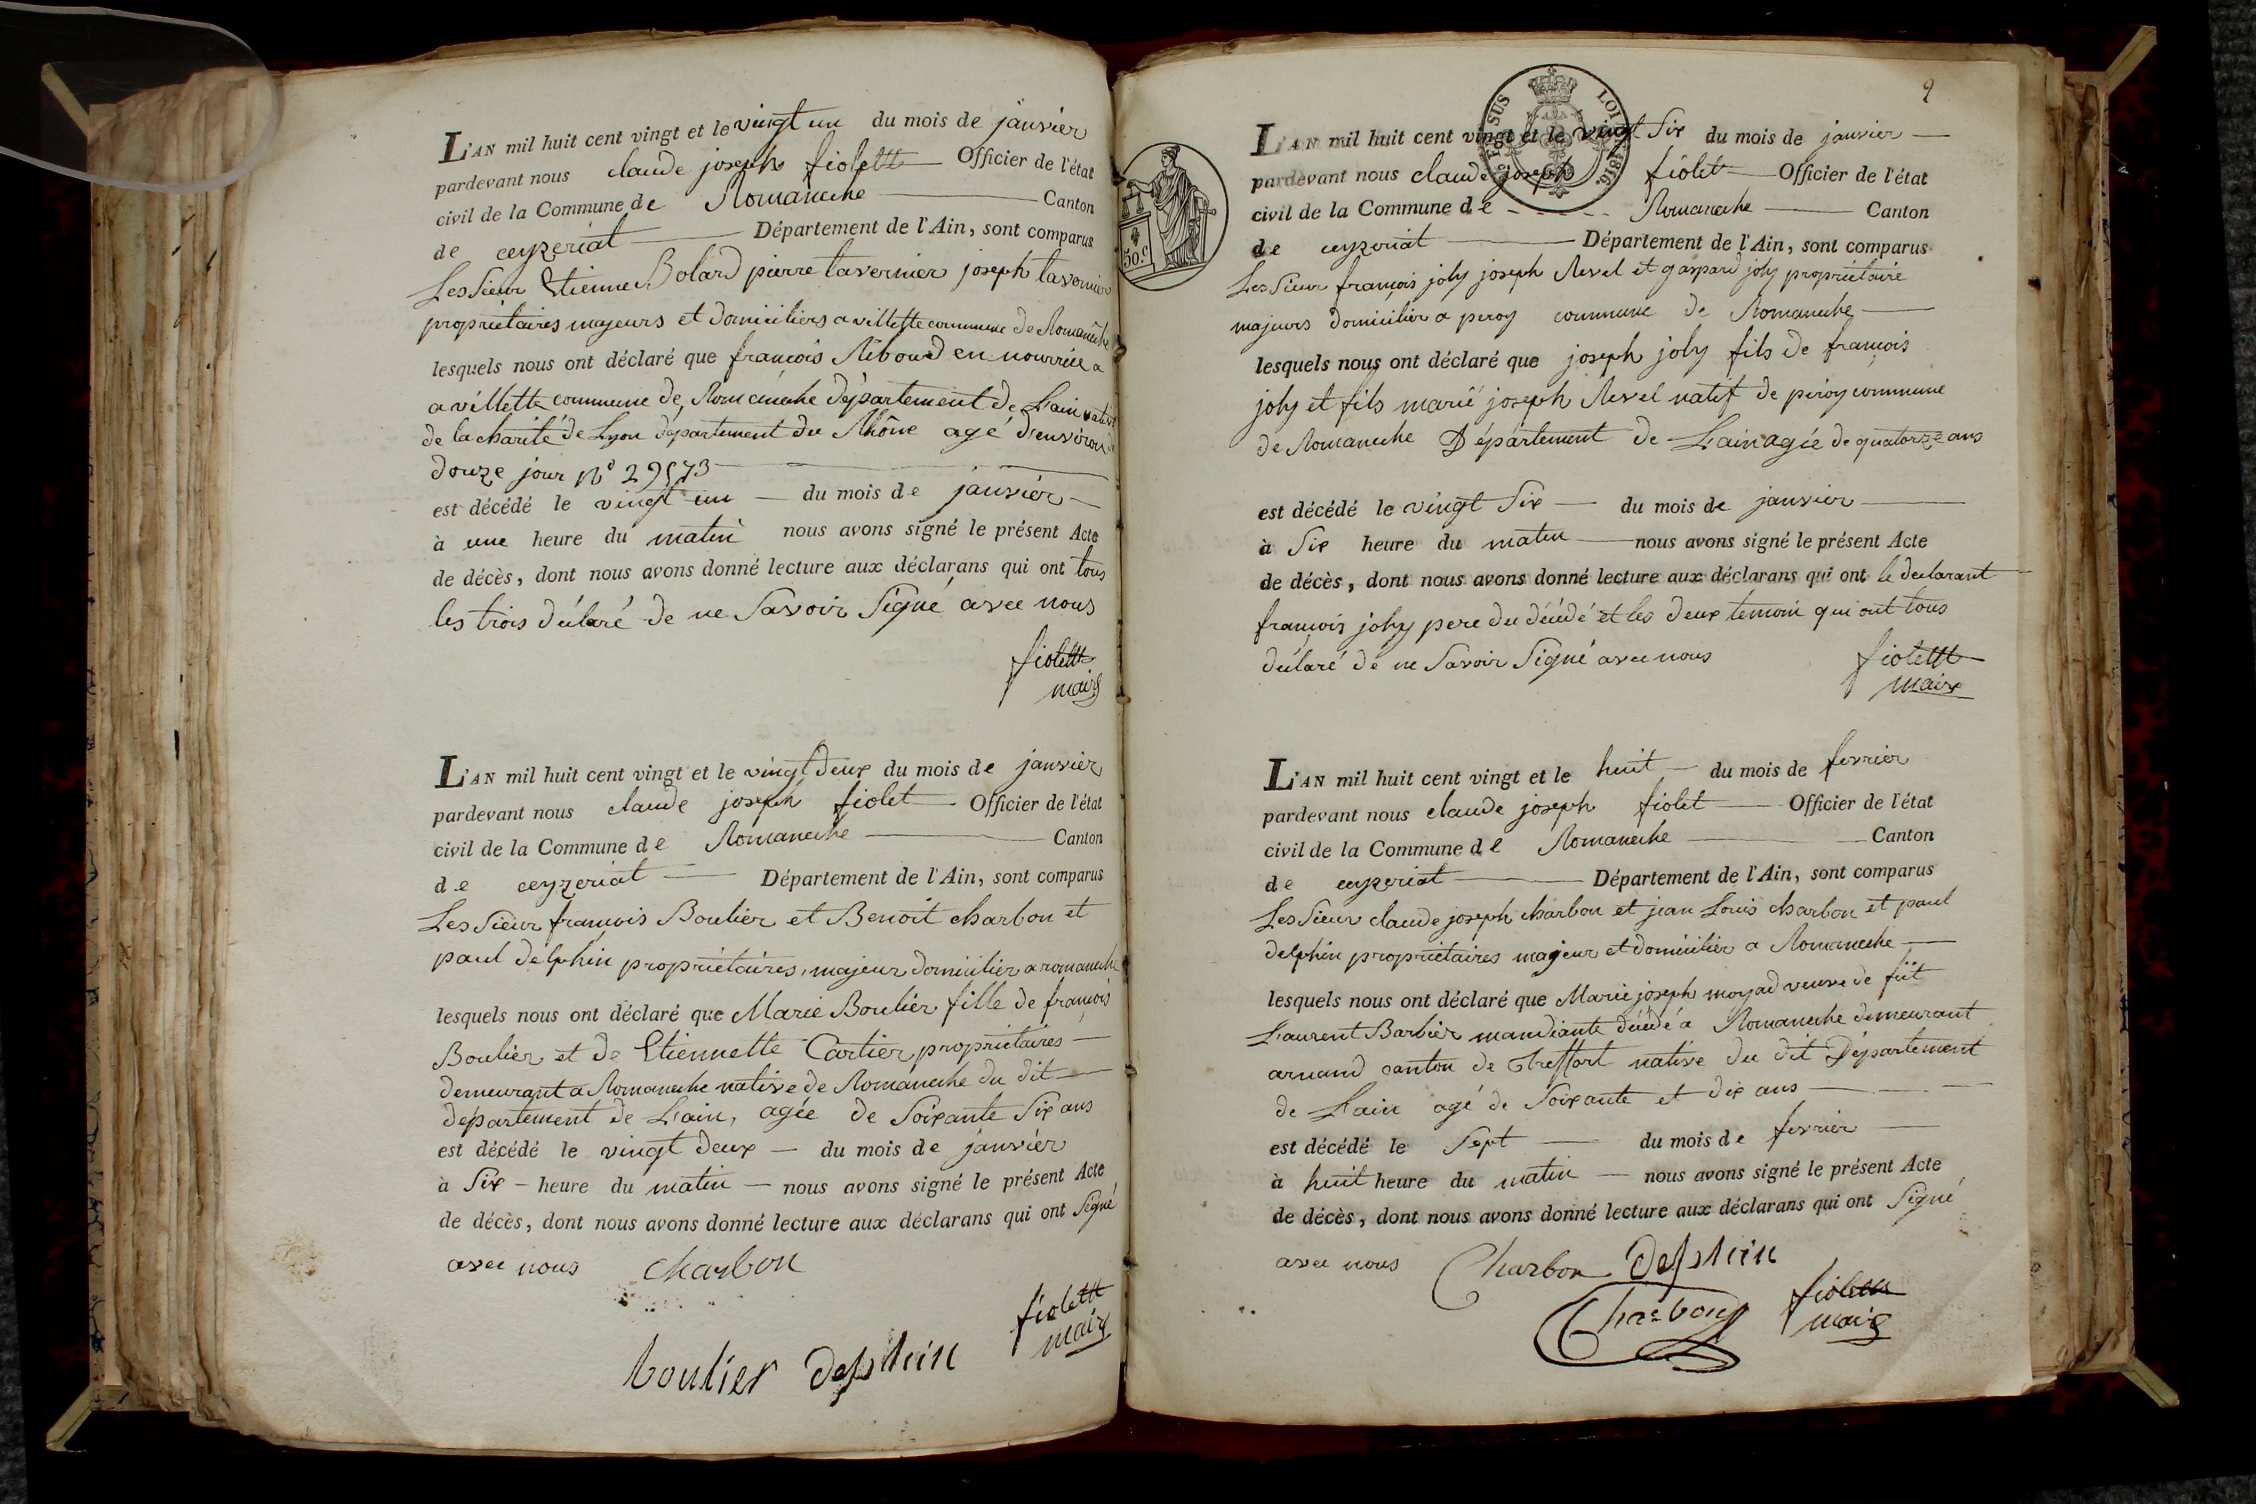 L'AN mil huit cent vingt et le vingt un du mois de janvier
pardevant nous claude joseph fiolett Officier de l'état
civil de la Commune de Romaneche Canton
de ceyzeriat Département de l'Ain, sont comparus
Les Sieur Etienne Bolard pierre tavernier joseph tavernier
proprietaires majeurs et domiciliers a villette commune de Romaneche
lesquels nous ont déclaré que francois Riboud en nourrice a
a villette commune de Romaneche département de L'ain natif
de la charité de Lyon departement du Rhône agé d'environ
douze jour No 29573
est décédé le vingt un du mois de janvier
à une heure du matin nous avons signé le présent Acte
de décès, dont nous avons donné lecture aux déclarans qui ont tous
les trois déclaré de ne Savoir Signé avec nous
fiolett
maire
L'AN mil huit cent vingt et le vingt deux du mois de janvier
pardevant nous claude joseph fiolet Officier de l'état
civil de la Commune de Romaneche Canton
de ceyzeriat Département de l'Ain, sont comparus
Les Sieur francois Boulier et Benoit charbon et
paul delphin proprietaires, majeur domicilier a romaneche
lesquels nous ont déclaré que Marie Boulier fille de francois
Boulier et de Etiennette Cartier proprietaires
demeurant a Romaneche native de Romaneche du dit
departement de L'ain, agée de Soixante Six ans
est décédé le vingt deux du mois de janvier
à Six heure du matin nous avons signé le présent Acte
de décès, dont nous avons donné lecture aux déclarans qui ont Signé
avec nous charbon
fiolett
maire
boulier delphin
2
SUS
LOI
1816
50.c
L'AN mil huit cent vingt et le vingt Six du mois de janvier
pardevant nous claude joseph fiolet Officier de l'état
civil de la Commune de Romaneche Canton
de ceyzeriat Département de l'Ain, sont comparus
Les Sieur françois joly joseph Revel et gaspard joly propriétaire
majeurs domicilier a peroy commune de Romaneche
lesquels nous ont déclaré que joseph joly fils de francois
joly et fils marië joseph Revel natif de peroy commune
de Romaneche Département de L'ain agée de quatorze ans
est décédé le vingt Six du mois de janvier
à Six heure du matin nous avons signé le présent Acte
de décès, dont nous avons donné lecture aux déclarans qui ont le declarant
francois joly pere du décédé et les deux temoin qui ont tous
déclaré de ne Savoir Signé avec nous
fiolett
maire
L'AN mil huit cent vingt et le huit du mois de fevrier
pardevant nous claude joseph fiolet Officier de l'état
civil de la Commune de Romaneche Canton
de ceyzeriat Département de l'Ain, sont comparus
Les Sieur claude joseph charbon et jean Louis charbon et paul
delphin proprietaires majeur et domicilier a Romaneche
lesquels nous ont déclaré que Marie joseph moyad veuve de füt
Laurent Barbier mandiante décédé a Romaneche demeurant
arnand canton de Treffort native du dit Département
de L'ain agé de Soixante et dix ans
est décédé le Sept du mois de fevrier
à huit heure du matin nous avons signé le présent Acte
de décès, dont nous avons donné lecture aux déclarans qui ont Signé
avec nous Charbon delphin
Charbon fiolett
maire